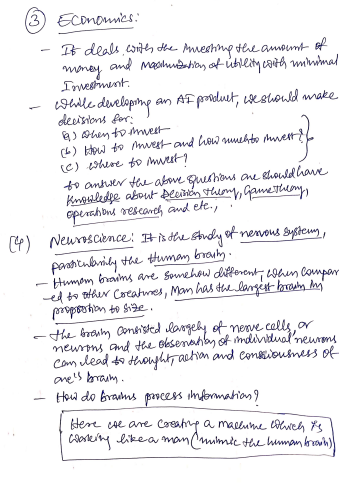 (3) Economics:
- It deals with the Investing the amount of
money and Maximization of utility with minimal
Investment.
- While developing an AI product, we should make
decisions for:
(a) When to Invest
(b) How to Invest and how much to Invest?
(c) Where to Invest?
to answer the above questions one should have
Knowledge about Decision Theory, Game Theory,
operations research and etc.,
(4) Neuroscience: It is the study of nervous system,
particularly the Human brain.
- Human brains are somehow different, when compar
-ed to other Creatures, Man has the largest brain in
proportion to size.
- The brain consisted largely of nerve cells, or
neurons and the observation of individual neurons
can lead to thought, action and consciousness of
one's brain.
- How do Brains process information?
Here we are creating a machine which is
working like a man (mimic the human brain)